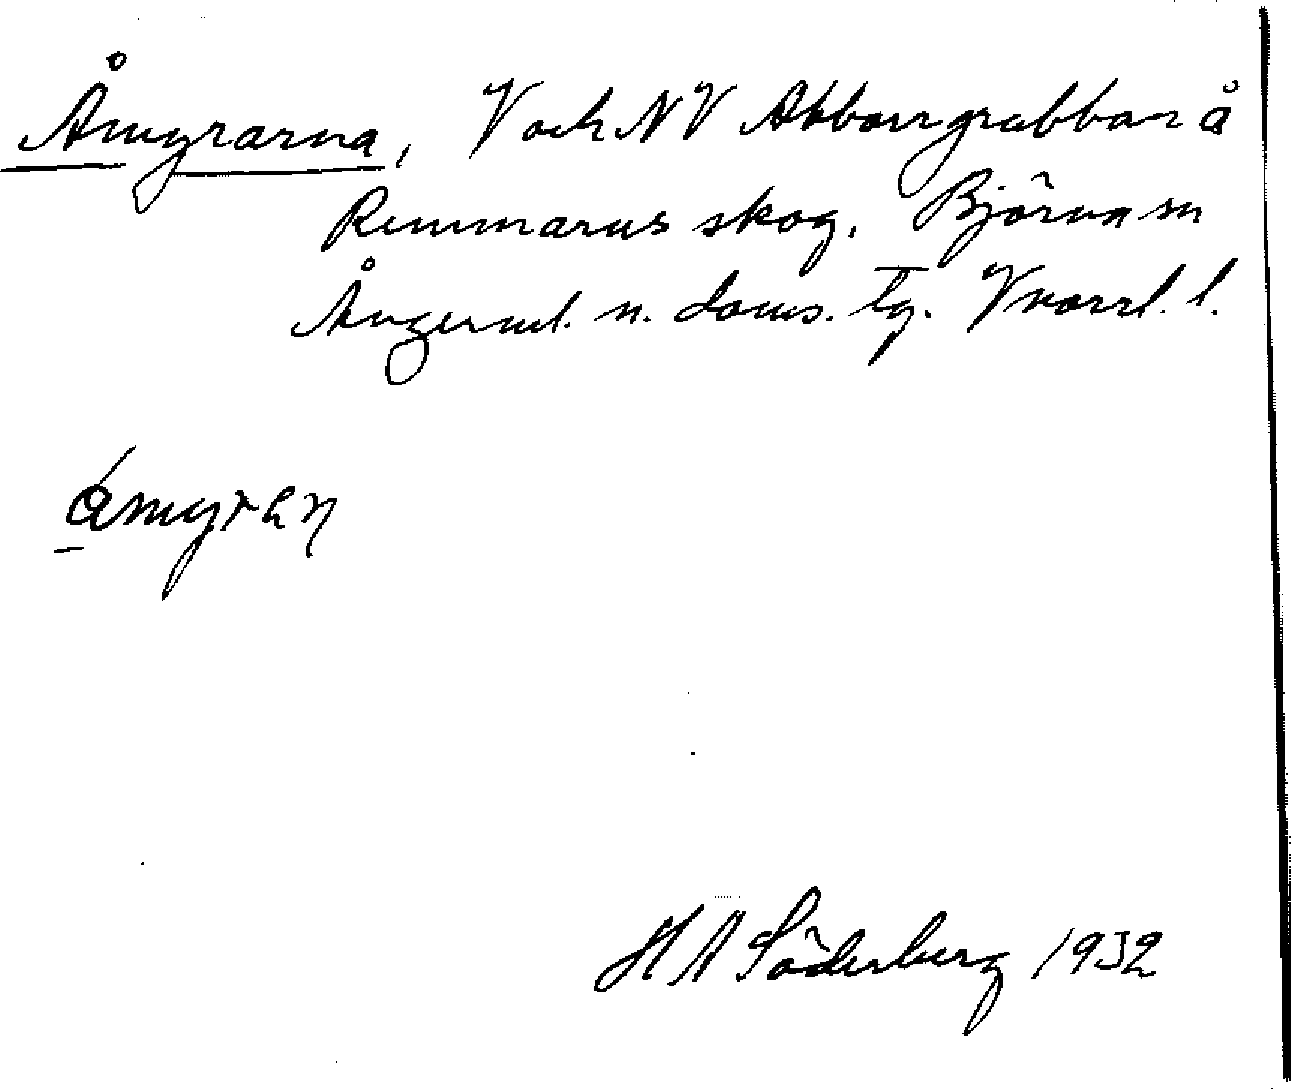 Åmyrarna, V och NV Abborrgrubban å
Remmarns skog. Björna sn
Ångerml. n. doms. tg. Vnorrl. l.
åmyran
H A Söderberg 1932